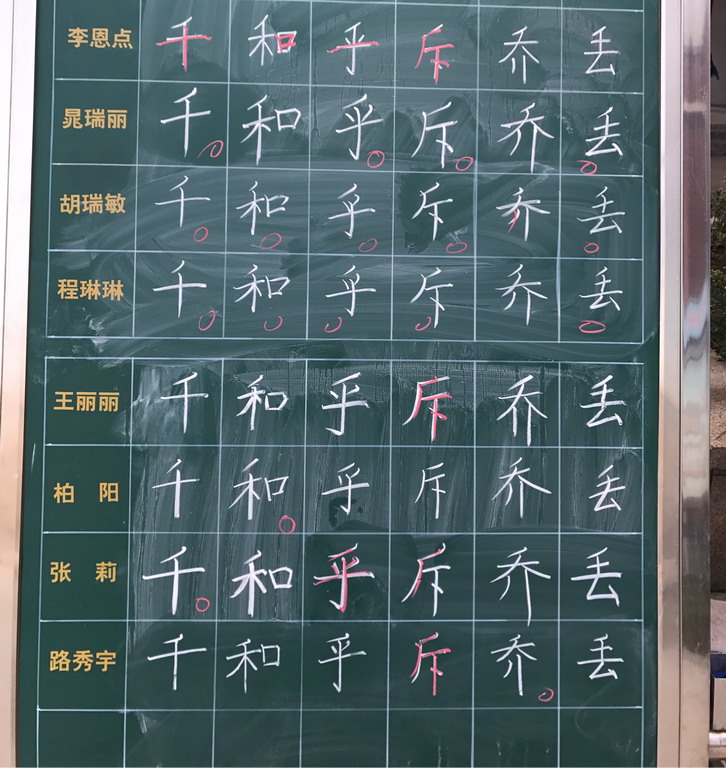 李恩点 千 和 乎 斥 乔 丢
晁瑞丽 千 和 乎 斥 乔 丢
胡瑞敏 千 和 乎 斥 乔 丢
程琳琳 千 和 乎 斥 乔 丢
王丽丽 千 和 乎 斥 乔 丢
柏阳 千 和 乎 斥 乔 丢
张莉 千 和 乎 斥 乔 丢
路秀宇 千 和 乎 斥 乔 丢